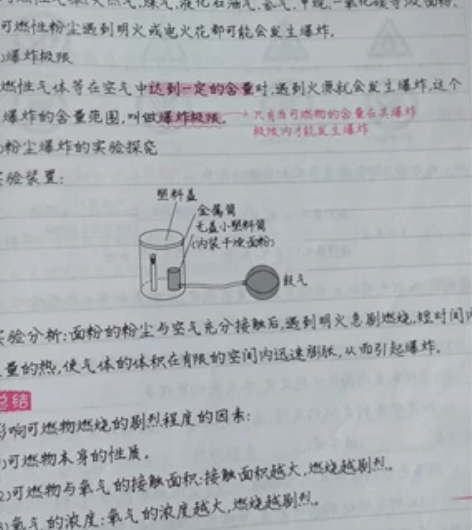 可燃性气体:天然气、煤气、液化石油气、氢气、甲烷、一氧化碳等及面粉、
可燃性粉尘遇到明火或电火花都可能会发生爆炸。
爆炸极限
燃性气体等在空气中达到一定的含量时,遇到火源就会发生爆炸,这个
爆炸的含量范围,叫做爆炸极限。
只有当可燃物的含量在其爆炸
极限内才能发生爆炸
粉尘爆炸的实验探究
验装置:
塑料盖
金属筒
无盖小塑料筒
(内装干燥面粉)
鼓气
实验分析:面粉的粉尘与空气充分接触后,遇到明火急剧燃烧,短时间内
量的热,使气体的体积在有限的空间内迅速膨胀,从而引起爆炸。
总结
影响可燃物燃烧的剧烈程度的因素:
可燃物本身的性质。
2)可燃物与氧气的接触面积:接触面积越大,燃烧越剧烈。
氧气的浓度:氧气的浓度越大,燃烧越剧烈。